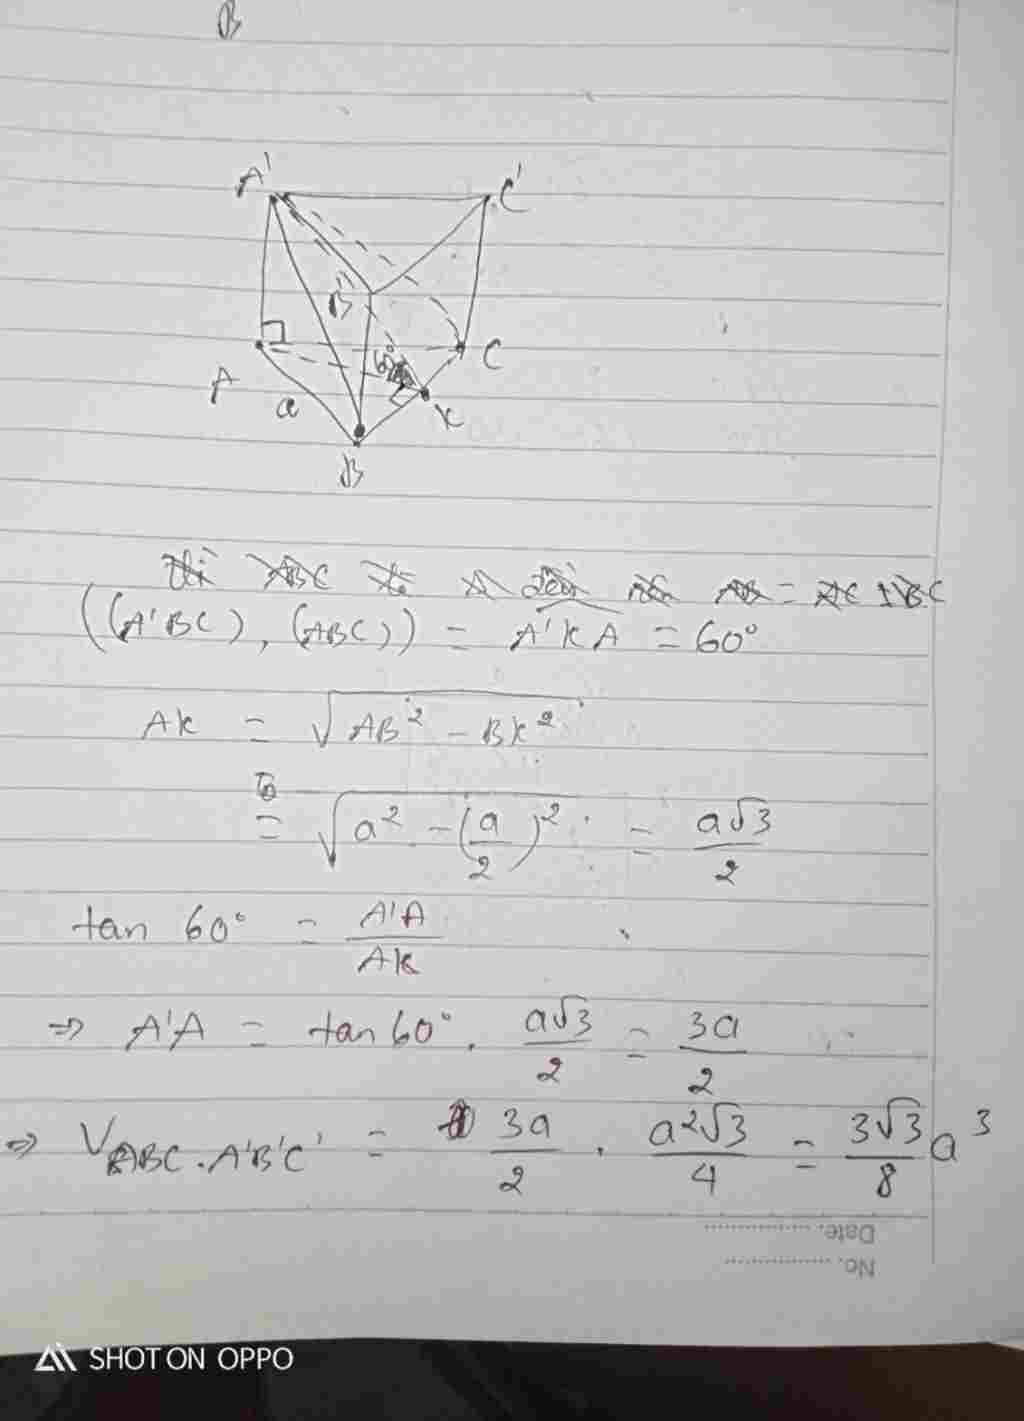 B
A'
C'
B'
60°
C
A
a
K
B
((A'BC), (ABC)) = A'KA = 60°
AK = √(AB² - BK²)
= √(a² - (a/2)²) = a√3/2
tan 60° = A'A/AK
⇒ A'A = tan 60° . a√3/2 = 3a/2
⇒ V ABC.A'B'C' = 3a/2 . a²√3/4 = 3√3/8 a³
Date.
No.
SHOT ON OPPO